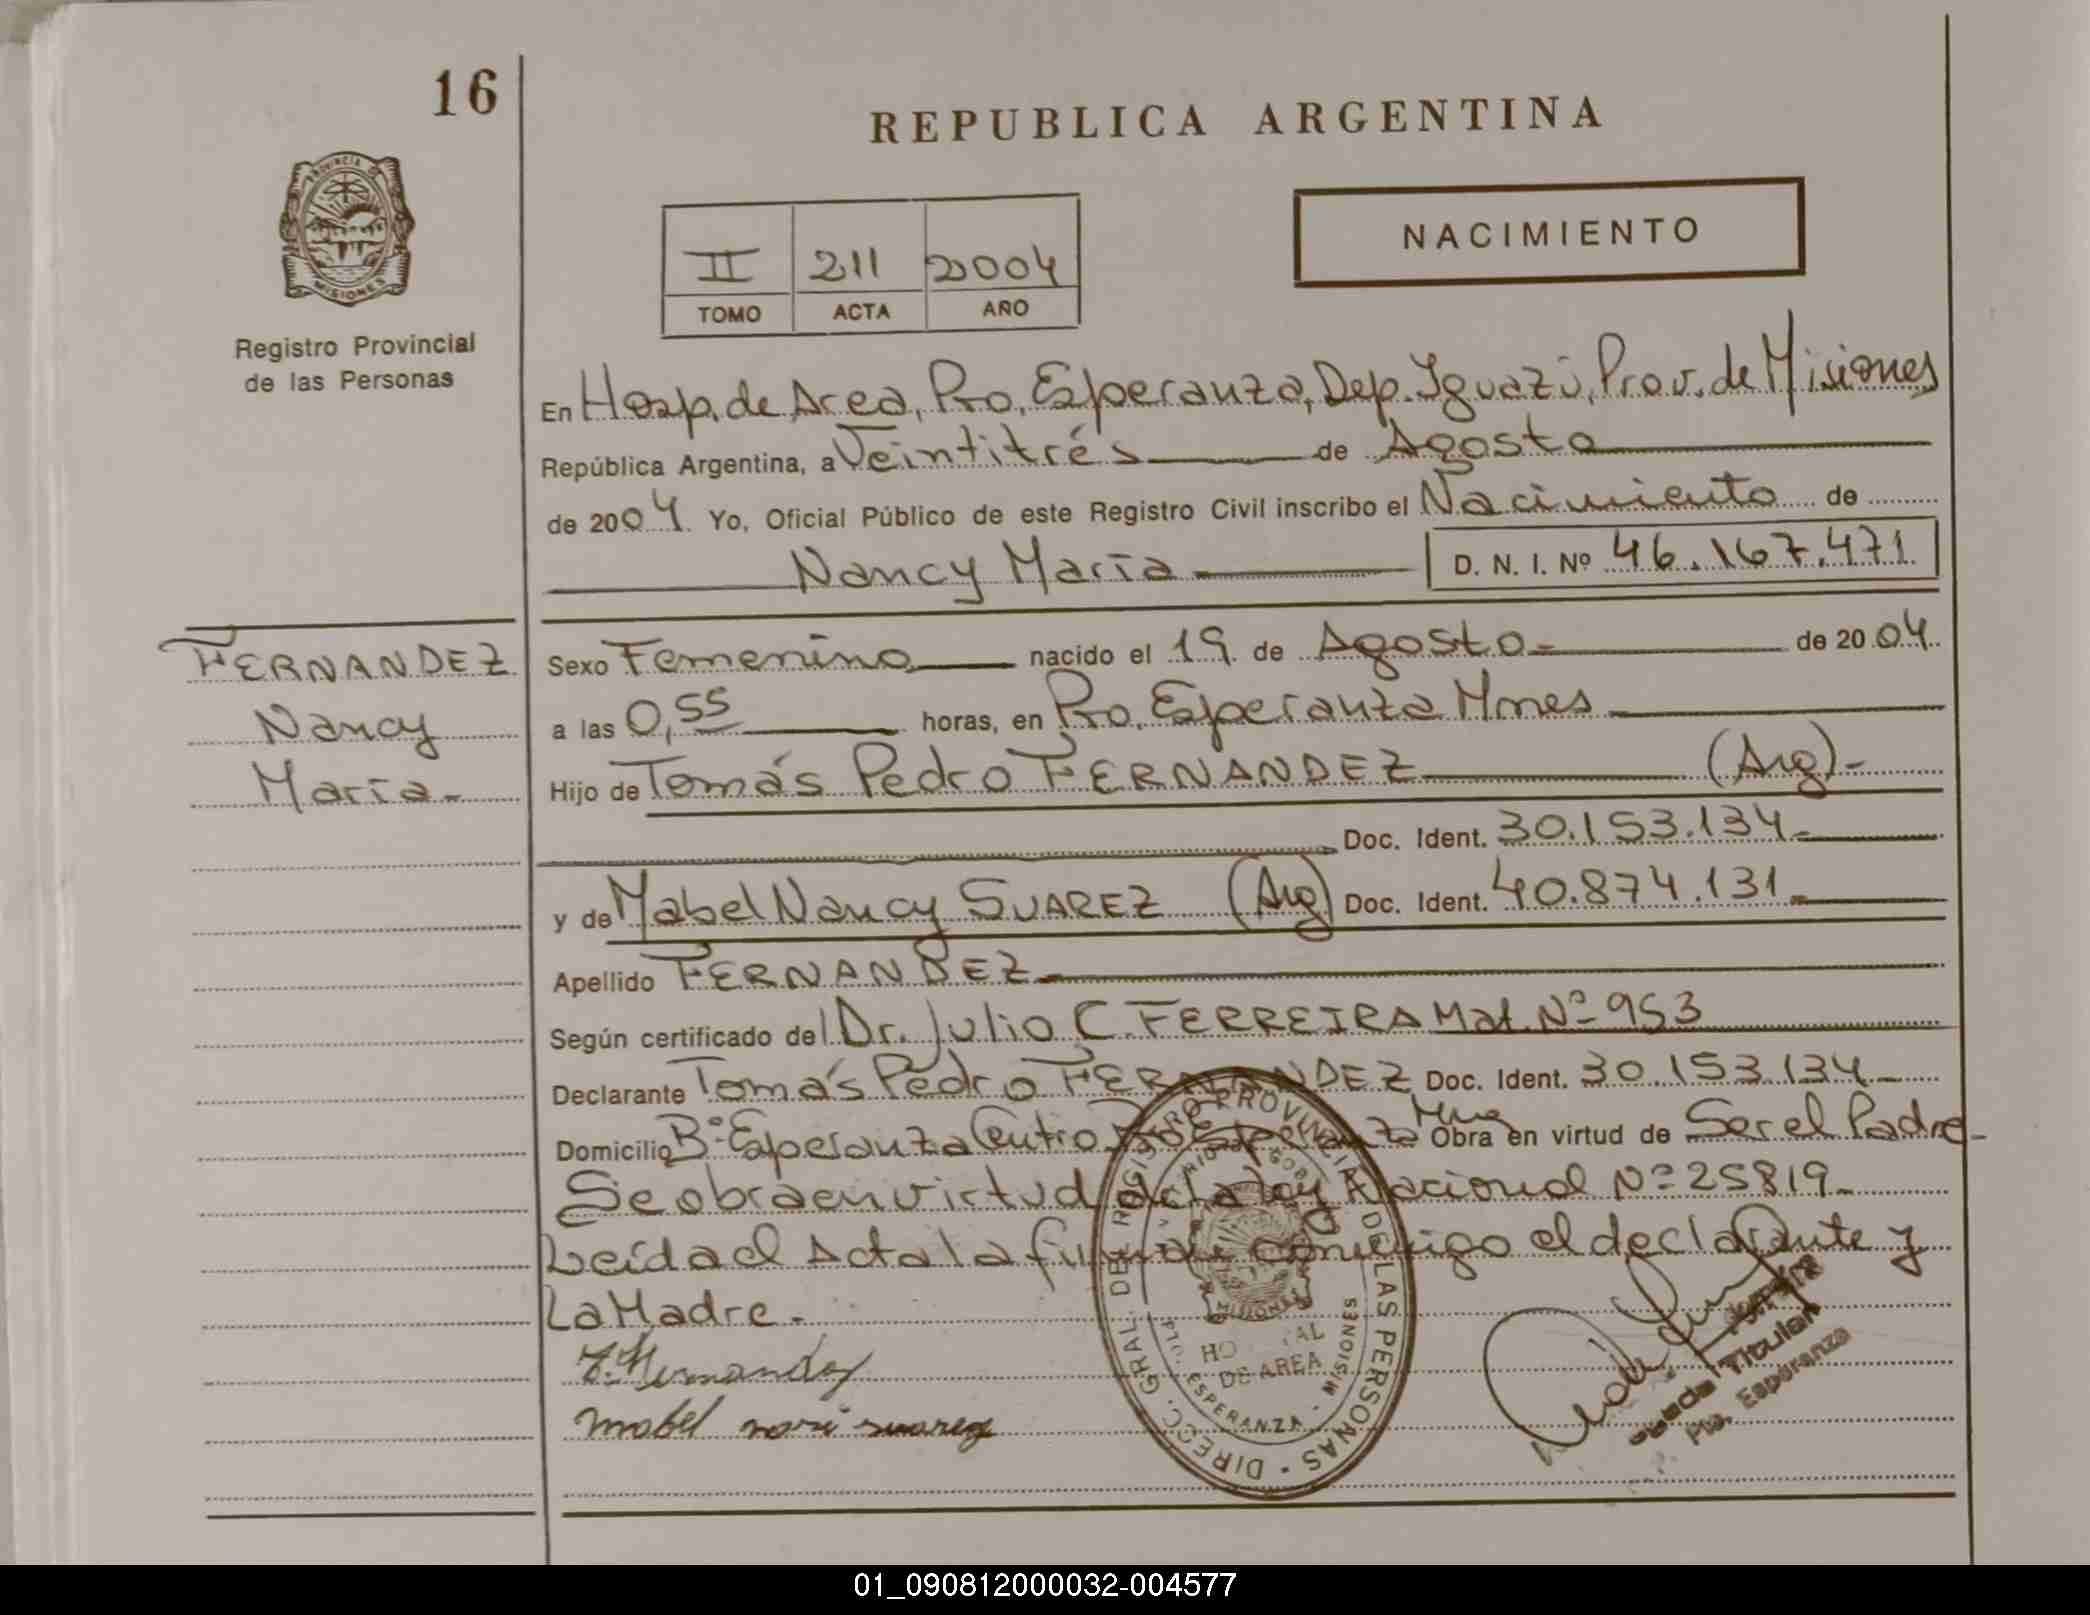 16
REPUBLICA ARGENTINA
PROVINCIA DE
MISIONES
Registro Provincial
de las Personas
II 211 2004
TOMO ACTA AÑO
NACIMIENTO
En Hosp. de Area, Pto. Esperanza, Dep. Iguazú, Prov. de Misiones
República Argentina, a Veintitrés de Agosto
de 2004 Yo, Oficial Público de este Registro Civil inscribo el Nacimiento de
Nancy María D. N. I. Nº 46.167.471
FERNANDEZ
Nancy
María.-
Sexo Femenino nacido el 19 de Agosto.- de 2004
a las 0,55 horas, en Pto. Esperanza Mnes
Hijo de Tomás Pedro FERNANDEZ (Arg)-
Doc. Ident. 30.153.134.-
y de Mabel Nancy SUAREZ (Arg) Doc. Ident. 40.874.131.-
Apellido FERNANDEZ.-
Según certificado del Dr. Julio C. FERREIRA Mat. Nº 953
Declarante Tomás Pedro FERNANDEZ Doc. Ident. 30.153.134.-
Domicilio Bº Esperanza Centro Pto Esperanza Obra en virtud de Ser el Padre-
Se obra en virtud de la ley Nacional Nº 25819.-
Leída el Acta la firman conmigo el declarante y
La Madre.-
mabel suarez
DIRECC. GRAL. DEL REGISTRO PROVINCIAL DE LAS PERSONAS
PTO. ESPERANZA - MISIONES
DE AREA
Titular
Pto. Esperanza
01_090812000032-004577